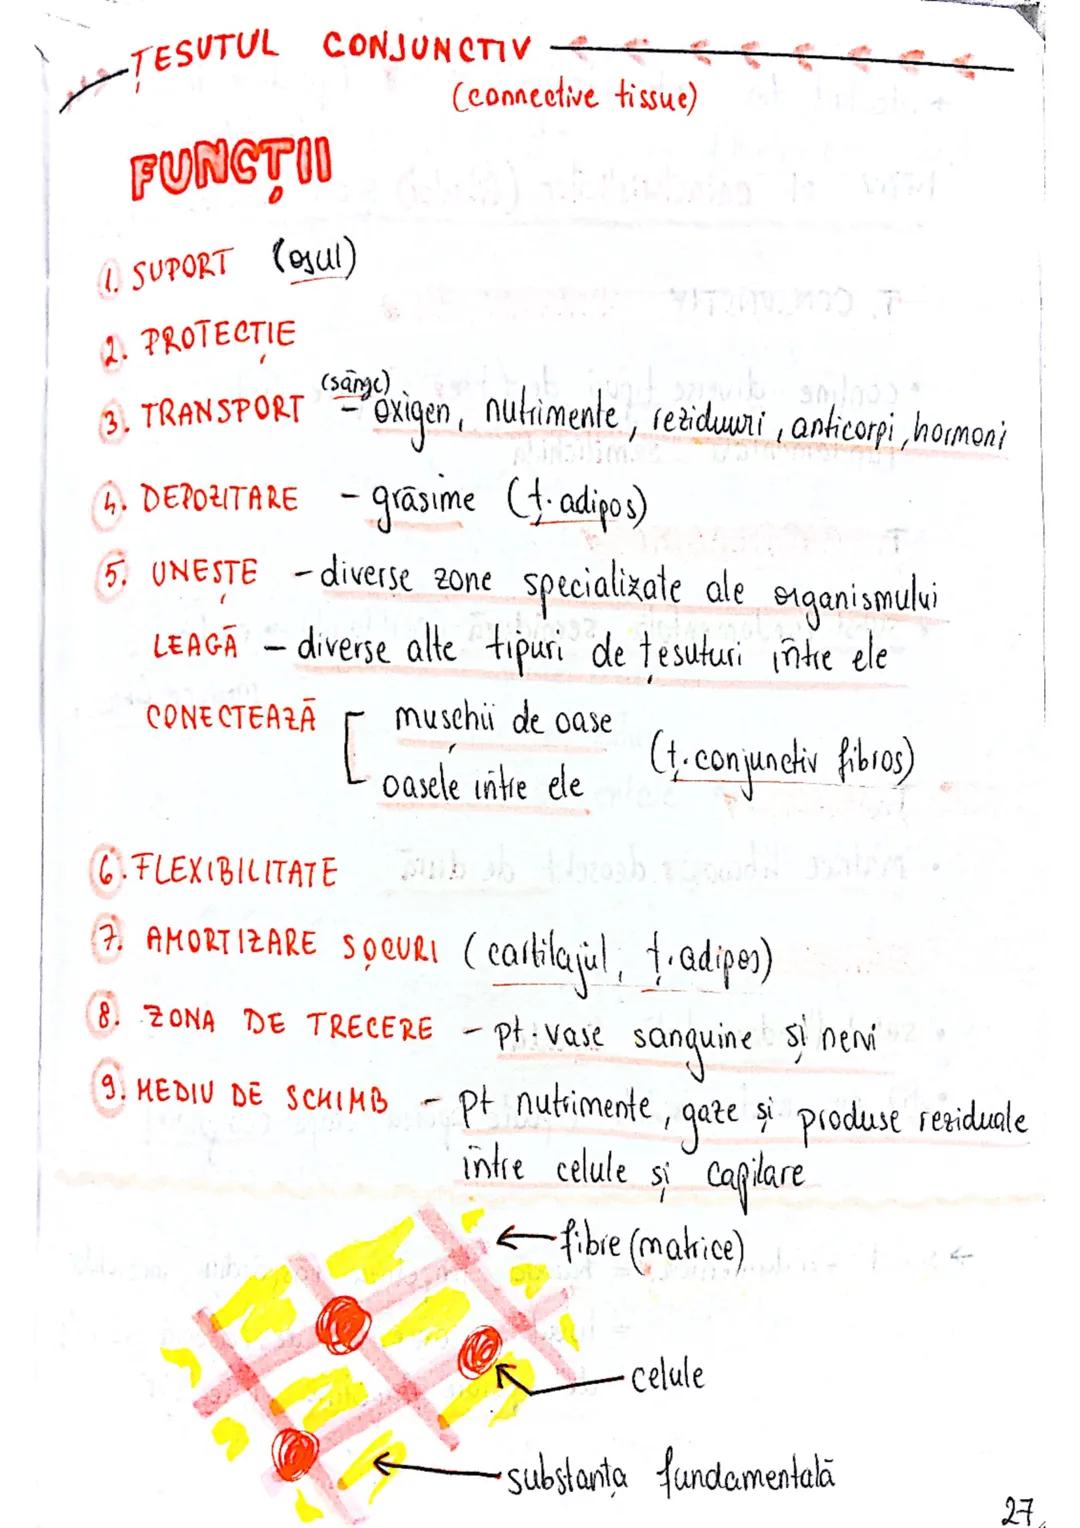 ȚESUTUL CONJUNCTIV
(connective tissue)
FUNCȚII
1. SUPORT (osul)
2. PROTECȚIE
3. TRANSPORT (sânge) - oxigen, nutrimente, reziduuri, anticorpi, hormoni
4. DEPOZITARE - grăsime (ț. adipos)
5. UNEȘTE - diverse zone specializate ale organismului
LEAGĂ - diverse alte tipuri de țesuturi între ele
CONECTEAZĂ [ mușchii de oase
oasele între ele (ț. conjunctiv fibros)
6. FLEXIBILITATE
7. AMORTIZARE ȘOCURI (cartilajul, ț. adipos)
8. ZONA DE TRECERE - pt. vase sanguine și nervi
9. MEDIU DE SCHIMB - pt nutrimente, gaze și produse reziduale
între celule și capilare
← fibre (matrice)
celule
substanța fundamentală
27.